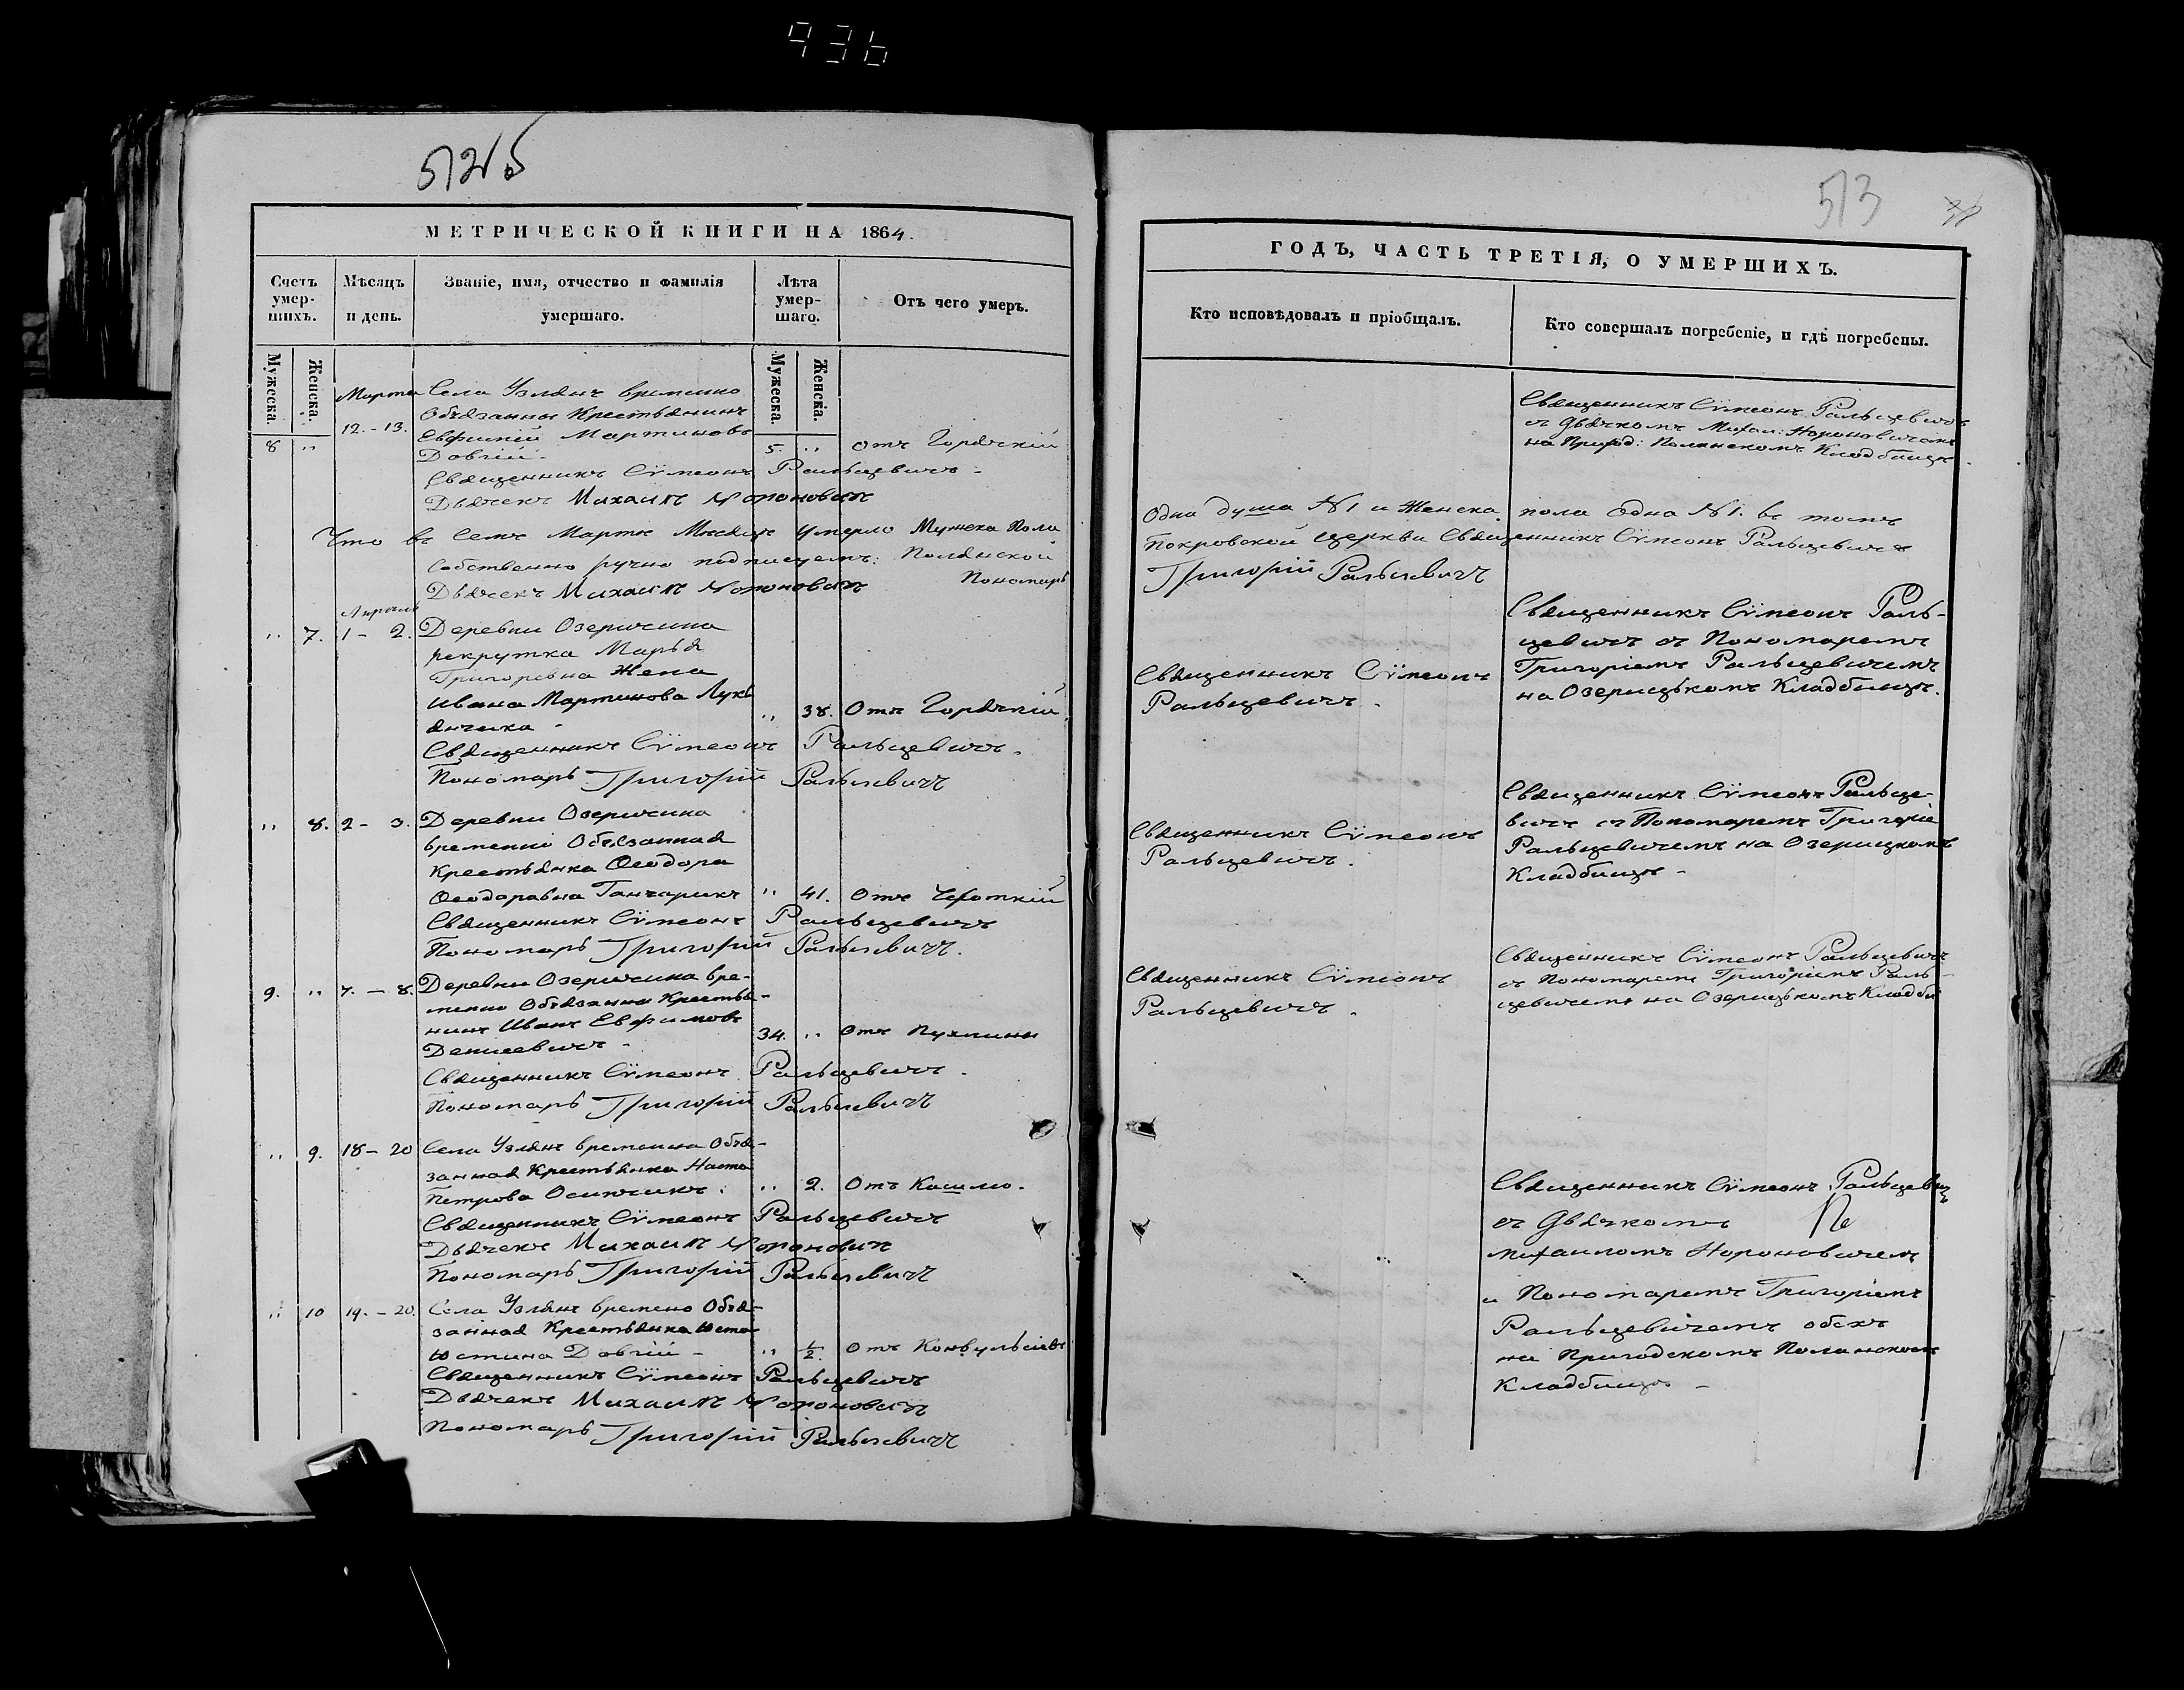 936
512 б
МЕТРИЧЕСКОЙ КНИГИ НА 1864.
Счетъ умер-шихъ.
Мѣсяцъ и день.
Званіе, имя, отчество и фамилія умершаго.
Лѣта умер-шаго.
Отъ чего умеръ.
Мужеска.
Женска.
Мужеска.
Женскіа.
Марта Села Узлянъ временно
12.-13. Обязанны Крестьянинъ
Евфимій Мартиновъ
8 „ Довгій - 5. „ Отъ Горячкій
Священникъ Сүмеонъ Ральцевичъ -
Дьячекъ Михаилъ Нороновичъ
Что въ Семъ Мартѣ Мѣсяцѣ Умерло Мужеска Пола
Собственно ручно подписуемъ: Полянской
Дьячекъ Михаилъ Нороновичъ Пономарь
Апрѣль
„ 7. 1- 2. Деревни Озеричина
рекрутка Марья
Григоревна Жена
Ивана Мартинова Лукь
янчика - „ 38. Отъ Горячкій.
Священникъ Сүмеонъ Ральцевичъ.
Пономарь Григорій Ральцевичъ
„ 8. 2- 3. Деревни Озеричина
временно Обязанная
Крестьянка Ѳеодора
Ѳеодоравна Ганчарикъ „ 41. Отъ Чhоткій
Священникъ Сүмеонъ Ральцевичъ
Пономарь Григорій Ральцевичъ.
9. „ 7. - 8. Деревни Озеричина вре-
менно Обязанны Крестья-
нинъ Иванъ Евфимовъ
Денисевичъ - 34. „ Отъ Пухлины
Священникъ Сүмеонъ Ральцевичъ.
Пономарь Григорій Ральцевичъ
„ 9. 18- 20 Села Узлянъ временна Обяз-
занная Крестьянка Наста
Петрова Осипчикъ. „ 2. Отъ Кашлю.
Священникъ Сүмеонъ Ральцевичъ
Дьячекъ Михаилъ Нороновичъ
Пономарь Григорій Ральцевичъ
„ 10 19. - 20. Села Узлянъ времено Обяз-
занная Крестьянка
Юстина Довгій - „ 1/2. Отъ Конвульсіевъ
Священникъ Сүмеонъ Ральцевичъ
Дьячекъ Михаилъ Нороновичъ
Пономарь Григорій Ральцевичъ
513
ГОДЪ, ЧАСТЬ ТРЕТІЯ, О УМЕРШИХЪ.
Кто исповѣдовалъ и пріобщалъ.
Кто совершалъ погребеніе, и гдѣ погребены.
Священникъ Сүмеонъ Ральцевичъ
съ Дьячкомъ Михаи: Нороновичемъ
на Приход: Полянскомъ Кладбищѣ.
Одна душа N1 и Женска пола Одна N1. въ томъ
Покровской Церкви Священникъ Сүмеонъ Ральцевичъ
Григорій Ральцевичъ
Священникъ Сүмеонъ
Ральцевичъ.
Священникъ Сүмеонъ Раль-
цевичъ съ Пономаремъ
Григоріемъ Ральцевичемъ
на Озерицькомъ Кладбищѣ.
Священникъ Сүмеонъ
Ральцевичъ.
Священникъ Сүмеонъ Ральце-
вичъ съ Пономаремъ Григоріе
Ральцевичемъ на Озерицкомъ
Кладбищѣ -
Священникъ Сүмеонъ
Ральцевичъ.
Священникъ Сүмеонъ Ральцевичъ
съ Пономаремъ Григоріемъ Раль-
цевичемъ на Озерицькомъ Кладби
Священникъ Сүмеонъ Ральцевичъ
съ Дьячкомъ
Михаиломъ Нороновичемъ
и Пономаремъ Григоріемъ
Ральцевичемъ обѣхъ
на Приходскомъ Полянскомъ
Кладбищѣ -